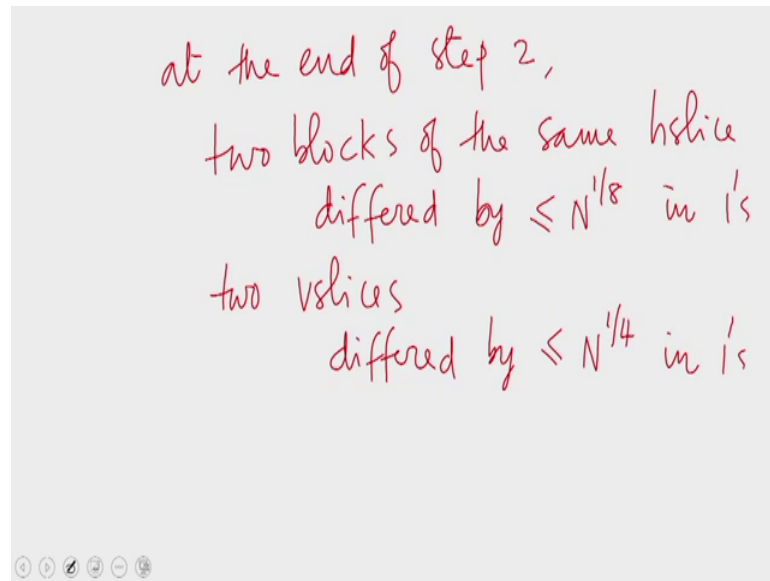 at the end of step 2,
two blocks of the same hslice
differed by ≤ N^{1/8} in 1's
two vslices
differed by ≤ N^{1/4} in 1's